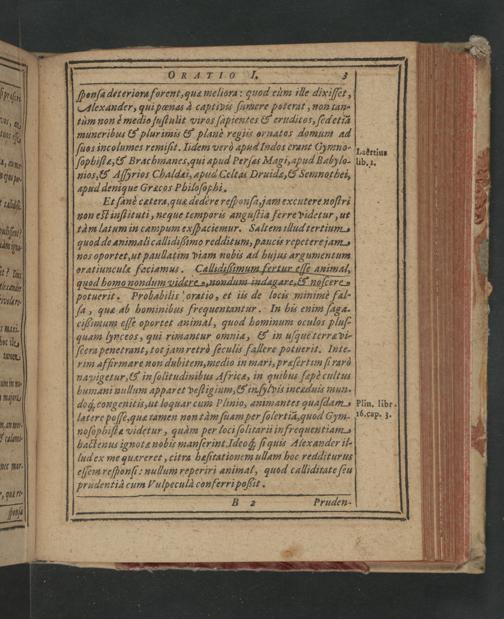 ORATIO I. 3
sponsa deteriora forent, quæ meliora: quod cùm ille dixisset,
Alexander, qui pœnas à captivis sumere poterat, non tan-
tùm non è medio sustulit viros sapientes & eruditos, sed etiã
muneribus & plurimis & planè regiis ornatos domum ad
suos incolumes remisit. Iidem verò apud Indos erant Gymno-
sophistæ, & Brachmanes, qui apud Persas Magi, apud Babylo-
nios, & Assyrios Chaldæi, apud Celtas Druidæ, & Semnothei,
apud denique Græcos Philosophi.
Laërtius
lib. 1.
Et sanè cætera, quæ dedêre responsa, jam excutere nostri
non est instituti, neque temporis angustia ferre videtur, ut
tàm latum in campum exspaciemur. Saltem illud tertium
quod de animali callidissimo redditum, paucis repetere jam
nos oportet, ut paullatim viam nobis ad hujus argumentum
oratiunculæ faciamus. Callidissimum fertur esse animal,
quod homo nondum videre, nondum indagare, & noscere
potuerit. Probabilis oratio, et iis de locis minimè fal-
sa, quæ ab hominibus frequentantur. In his enim saga-
cissimum esse oportet animal, quod hominum oculos plus-
quam lynceos, qui rimantur omnia, & in usque terræ vi-
scera penetrant, tot jam retrò seculis fallere potuerit. Inte-
rim affirmare non dubitem, medio in mari, præsertim si rarò
navigetur, & in solitudinibus Africæ, in quibus sæpè cultus
humani nullum apparet vestigium, & in sylvis incæduis mun-
doq́; congenitis, ut loquar cum Plinio, animantes quasdam
latere posse, quæ tamen non tàm suam per solertiã, quod Gym-
nosophistæ videtur, quàm per loci solitarii infrequentiam
hactenus ignotæ nobis manserint. Ideoq́; si quis Alexander il-
lud ex me quæreret, citra hæsitationem ullam hoc redditurus
essem responsi: nullum reperiri animal, quod calliditate seu
prudentiâ cum Vulpeculâ conferri possit.
Plin. lib.
16. cap. 3.
B 2 Pruden-